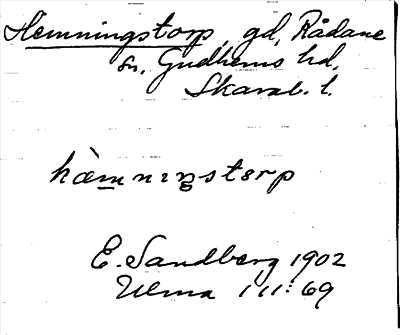 Hemningstorp, gd, Rådane
sn, Gudhems hd,
Skarab. l.
hèmnıŋstɔrp
E. Sandberg 1902
Ulma 111:69